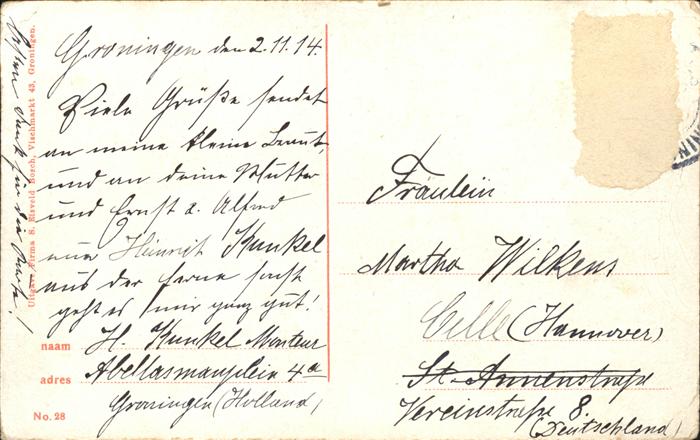 Groningen den 2.11.14.
Viele Grüße sendet
an meine kleine Braut,
und an deine Mutter
und Ernst u. Alfred
euer Heinrich Kunkel
aus der ferne sonst
geht es mir ganz gut!
naam H. Kunkel Monteur
adres Abellasmanplein 4a
Groningen (Holland)
No. 28
Besten Dank für die Karte!
Uitgave Firma S. Elsveld Bosch, Vischmarkt 43, Groningen.
Fräulein
Martha Wilkens
Celle (Hannover)
St. Annenstraße
Vereinstraße 8.
(Deutschland)